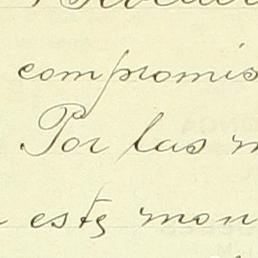 compromis
Por las m
este mon